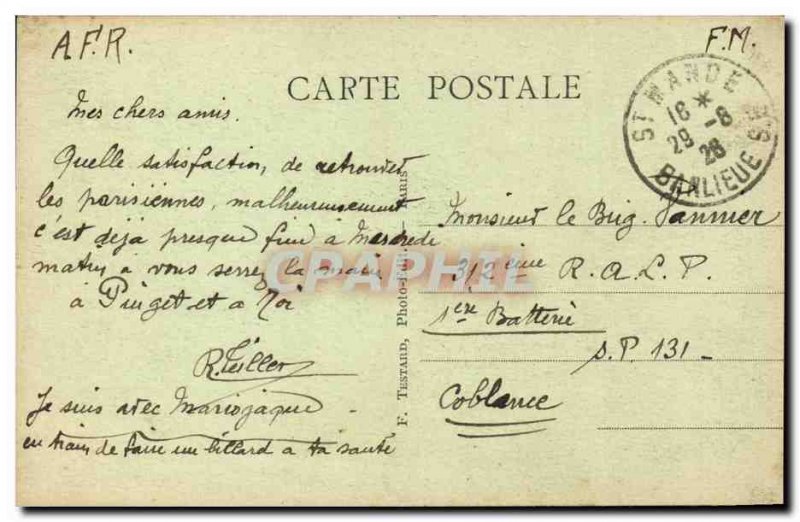 A.F.R.
F.M.
CARTE POSTALE
ST MANDE
16 *
29 - 8
28
BANLIEUE
Mes chers amis.
Quelle satisfaction, de retrouver
les parisiennes, malheureusement
c'est déja presque fini à Mercredi
matin à vous serrer la main
à Piuget et a Toi
R. Teiller
Je suis avec Mariojaque
en train de faire un billard a ta santé
F. TESTARD, Photo-Editeur, PARIS
CPAPHIL
Monsieur le Brig. Vannier
312 ème R.A.L.P.
1ère Batterie
S.P. 131 -
Coblance